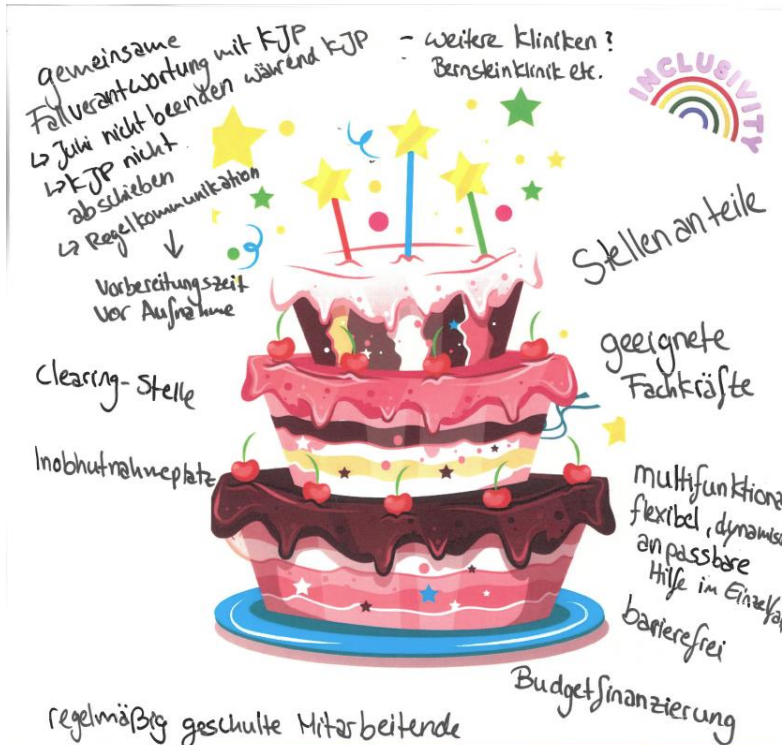 gemeinsame
Fallverantwortung mit KJP
↳ Juhi nicht beenden während KJP
↳ KJP nicht
abschieben
↳ Regelkommunikation
↓
Vorbereitungszeit
vor Aufnahme
- weitere Kliniken?
- Bernsteinklinik etc.
INCLUSIVITY
Stellenanteile
geeignete
Fachkräfte
Clearing-Stelle
Inobhutnahmeplatz
multifunktiona
flexibel, dynamis
anpassbare
Hilfe im Einzelfa
barierefrei
Budgetfinanzierung
regelmäßig geschulte Mitarbeitende